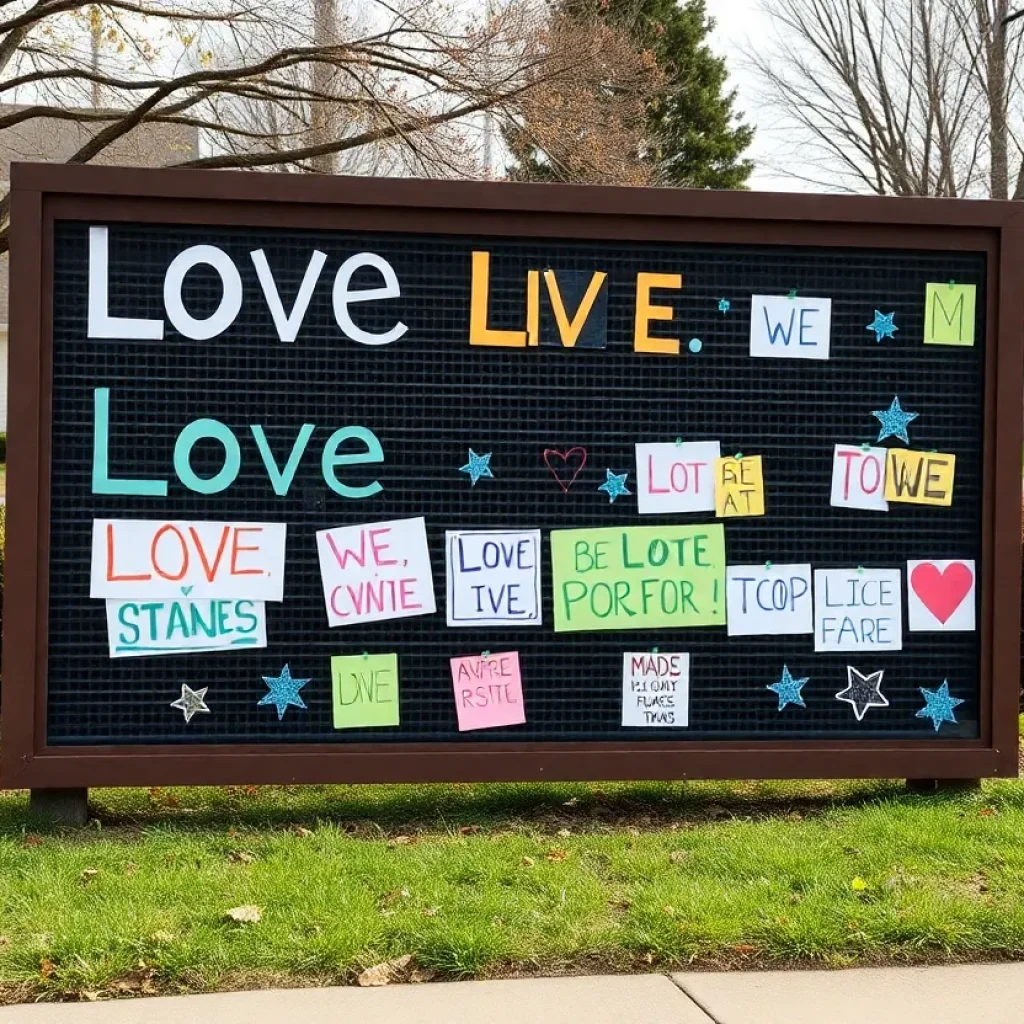 Love LIVE. WE M
Love
LOT BE AT TO WE
LOVE.
STANES
WE,
CVNTE
LOVE
IVE,
BE LOTE
PORFOR!
TCOP
LICE
FARE
MADE